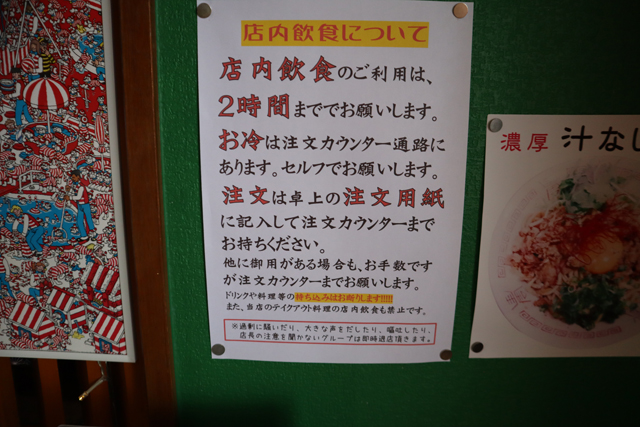 店内飲食について
店内飲食のご利用は、
2時間まででお願いします。
お冷は注文カウンター通路に
あります。セルフでお願いします。
注文は卓上の注文用紙
に記入して注文カウンターまで
お持ちください。
他に御用がある場合も、お手数です
が注文カウンターまでお願いします。
ドリンクや料理等の持ち込みはお断りします!!!!!
また、当店のテイクアウト料理の店内飲食も禁止です。
※過剰に騒いだり、大きな声をだしたり、嘔吐したり、
店長の注意を聞かないグループは即時退店頂きます。
濃厚 汁なし